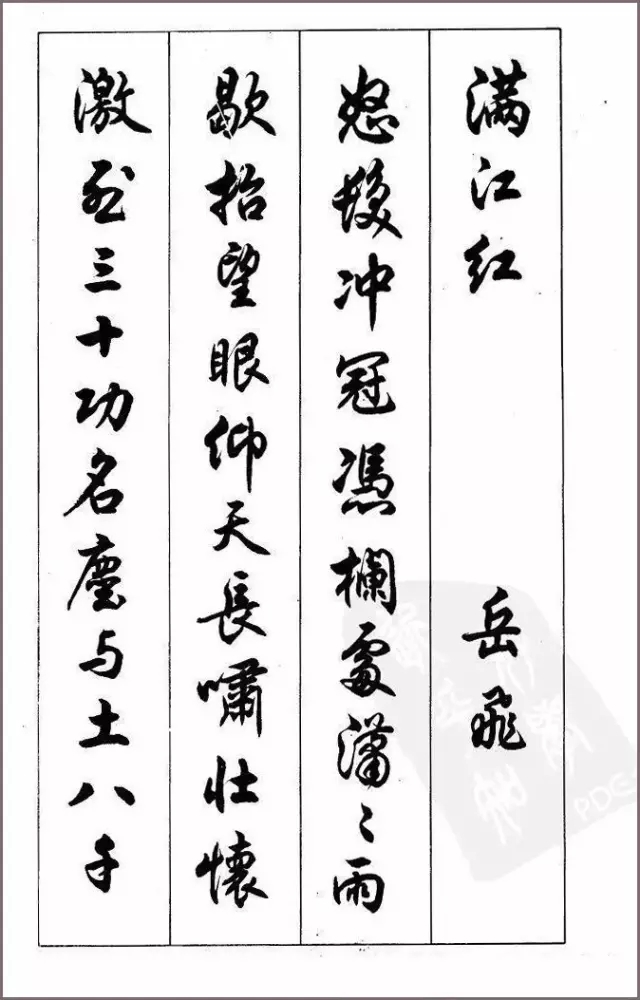 满江红 岳飛
怒髮冲冠馮欄處潇〻雨
歇抬望眼仰天長嘯壮懷
激烈三十功名塵与土八千
PDG